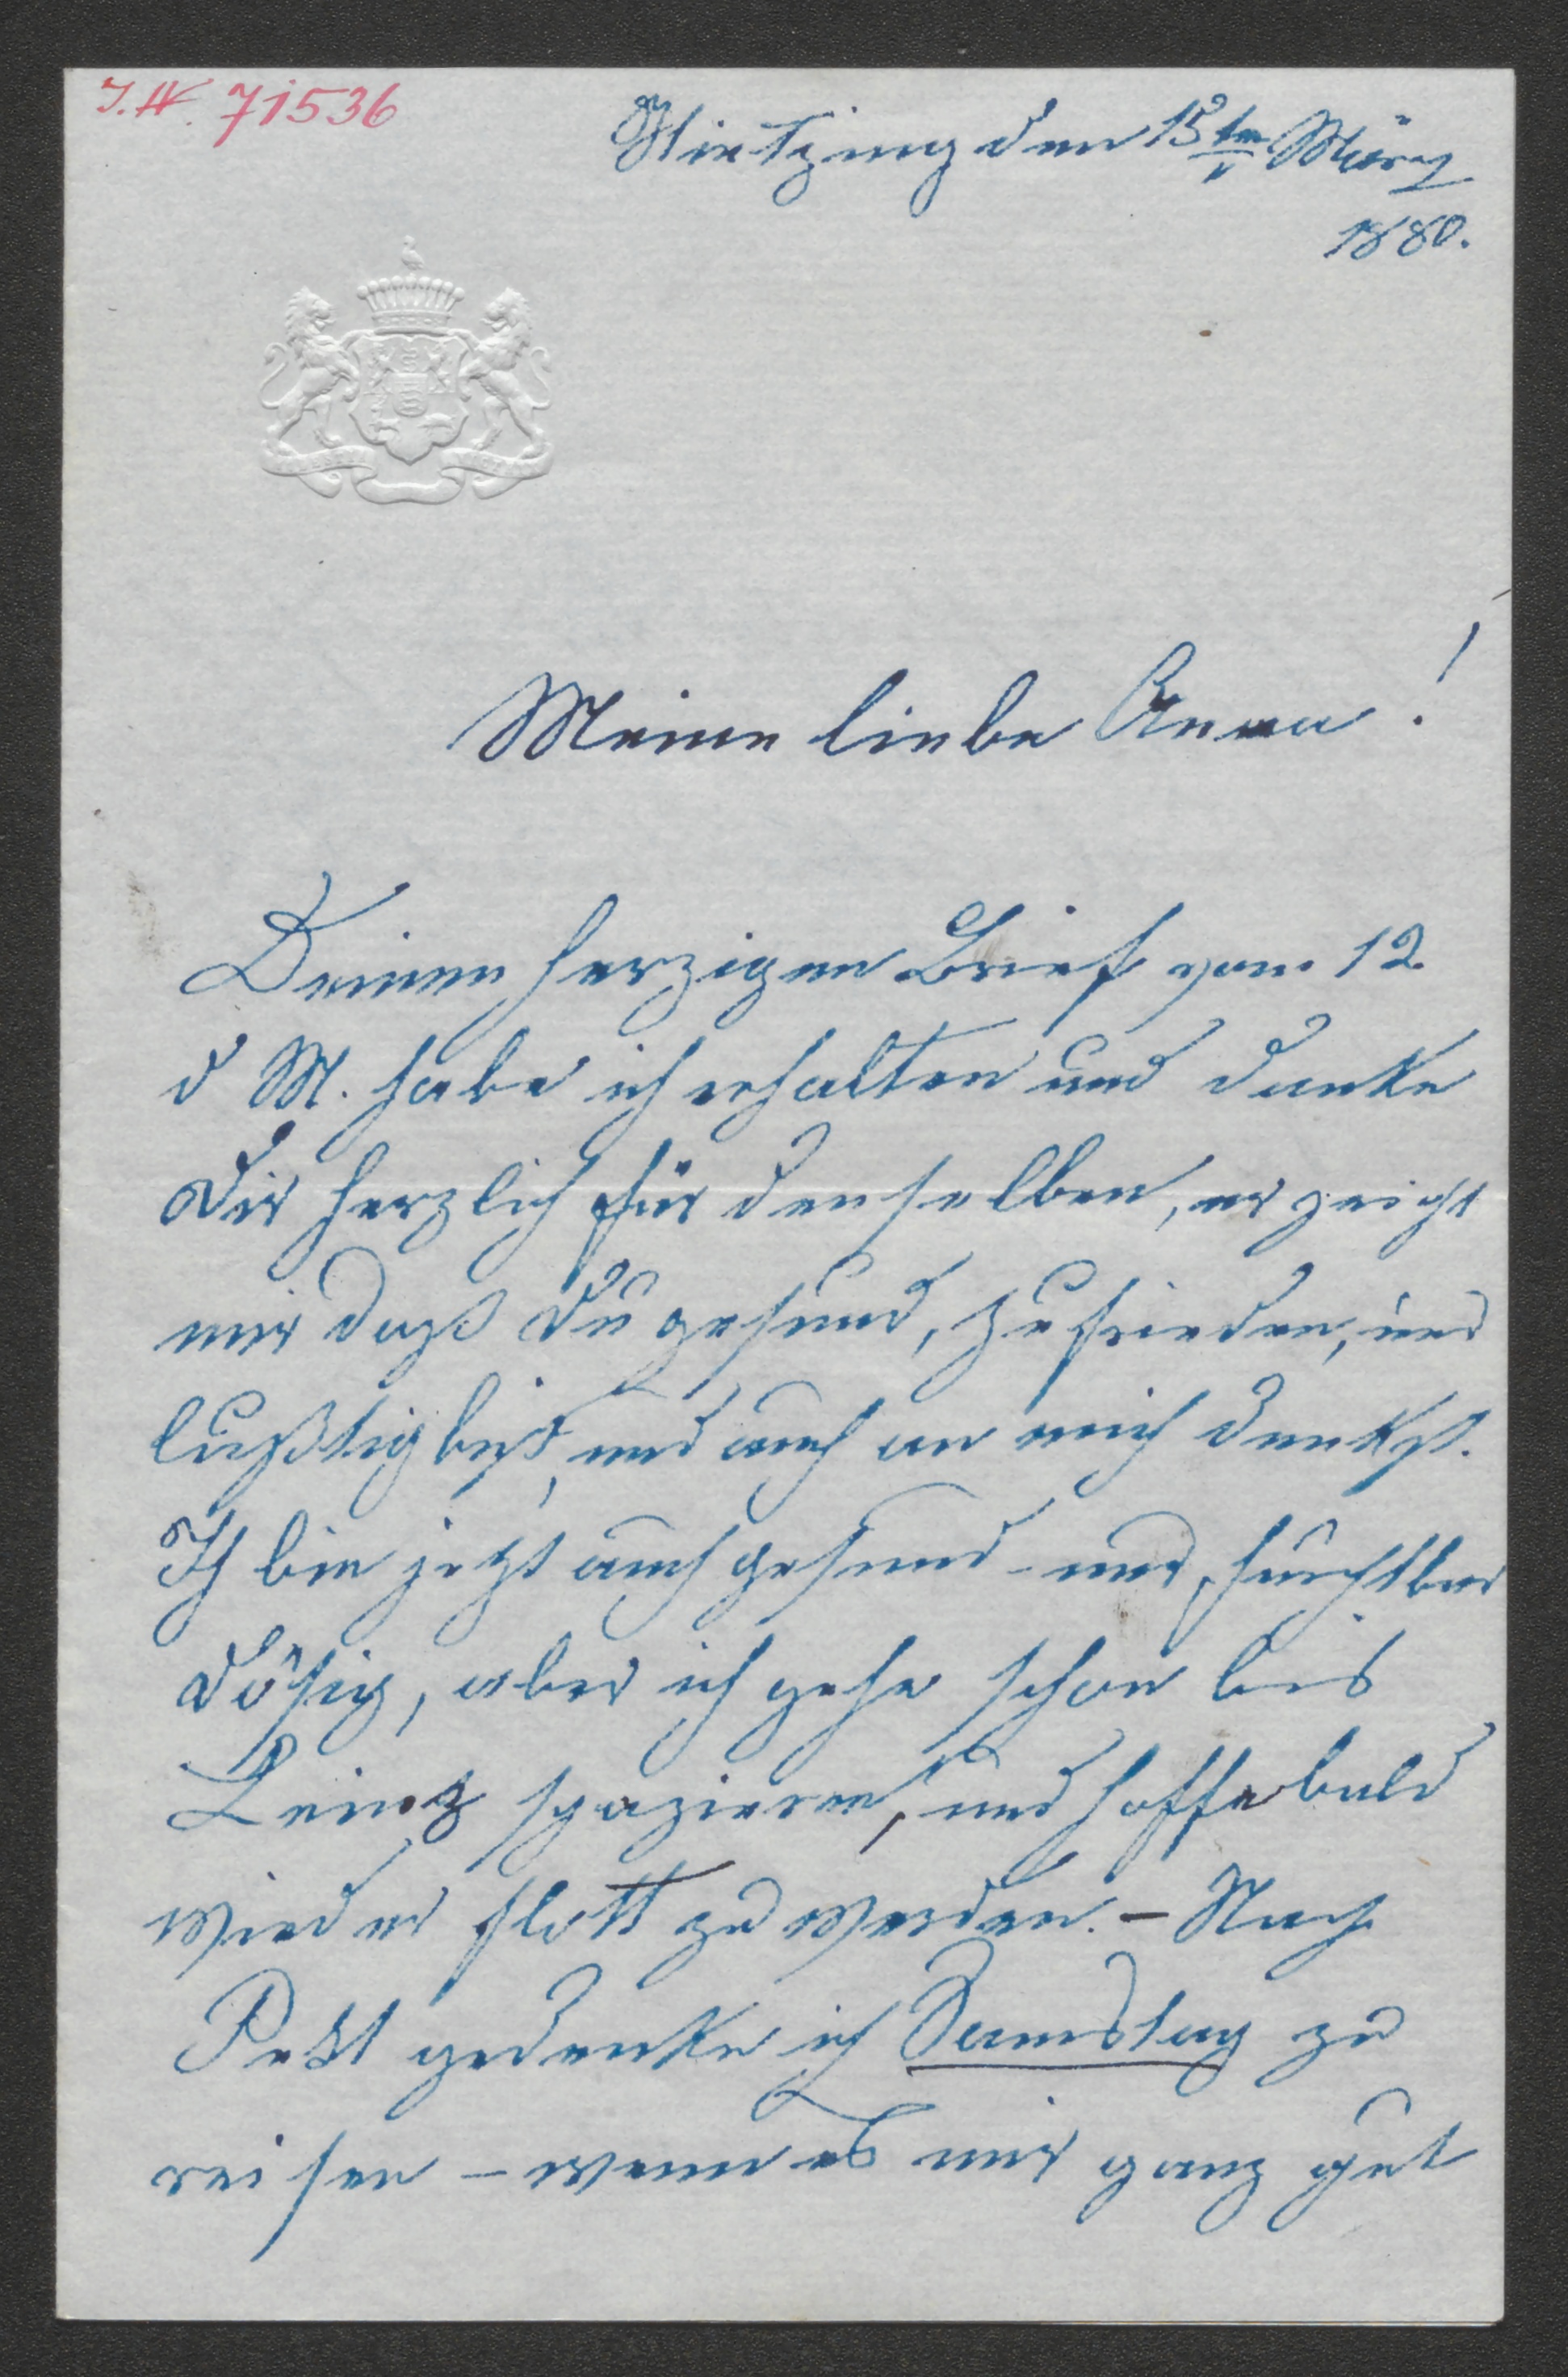 J. N. 71536
Hietzing den 15ten März
1880.
Meine liebe Anna!
Deinen herzigen Brief vom 12
d M. habe ich erhalten und danke
Dir herzlich für denselben, er zeigt
mir daß Du gesund, zufrieden, und
lußtig bist, und auch an mich denkst.
Ich bin jetzt auch gesund - und furchtbar
dösig, aber ich gehe schon bis
Leinz spazieren, und hoffe bald
wieder flott zu werden. - Nach
Pest gedenke ich Samstag zu
reisen - wenn es mir ganz gut